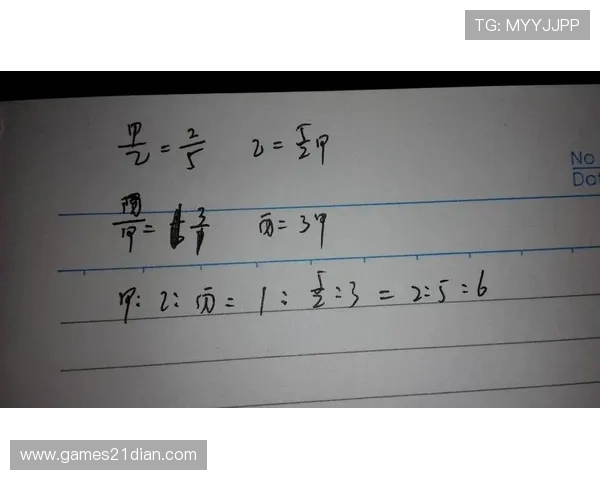 TG: MYYJJPP
甲/乙 = 2/5 乙 = 5/2 甲
No
Dat
丙/甲 = 3/1 丙 = 3甲
甲:乙:丙 = 1 : 5/2 : 3 = 2:5:6
www.games21dian.com